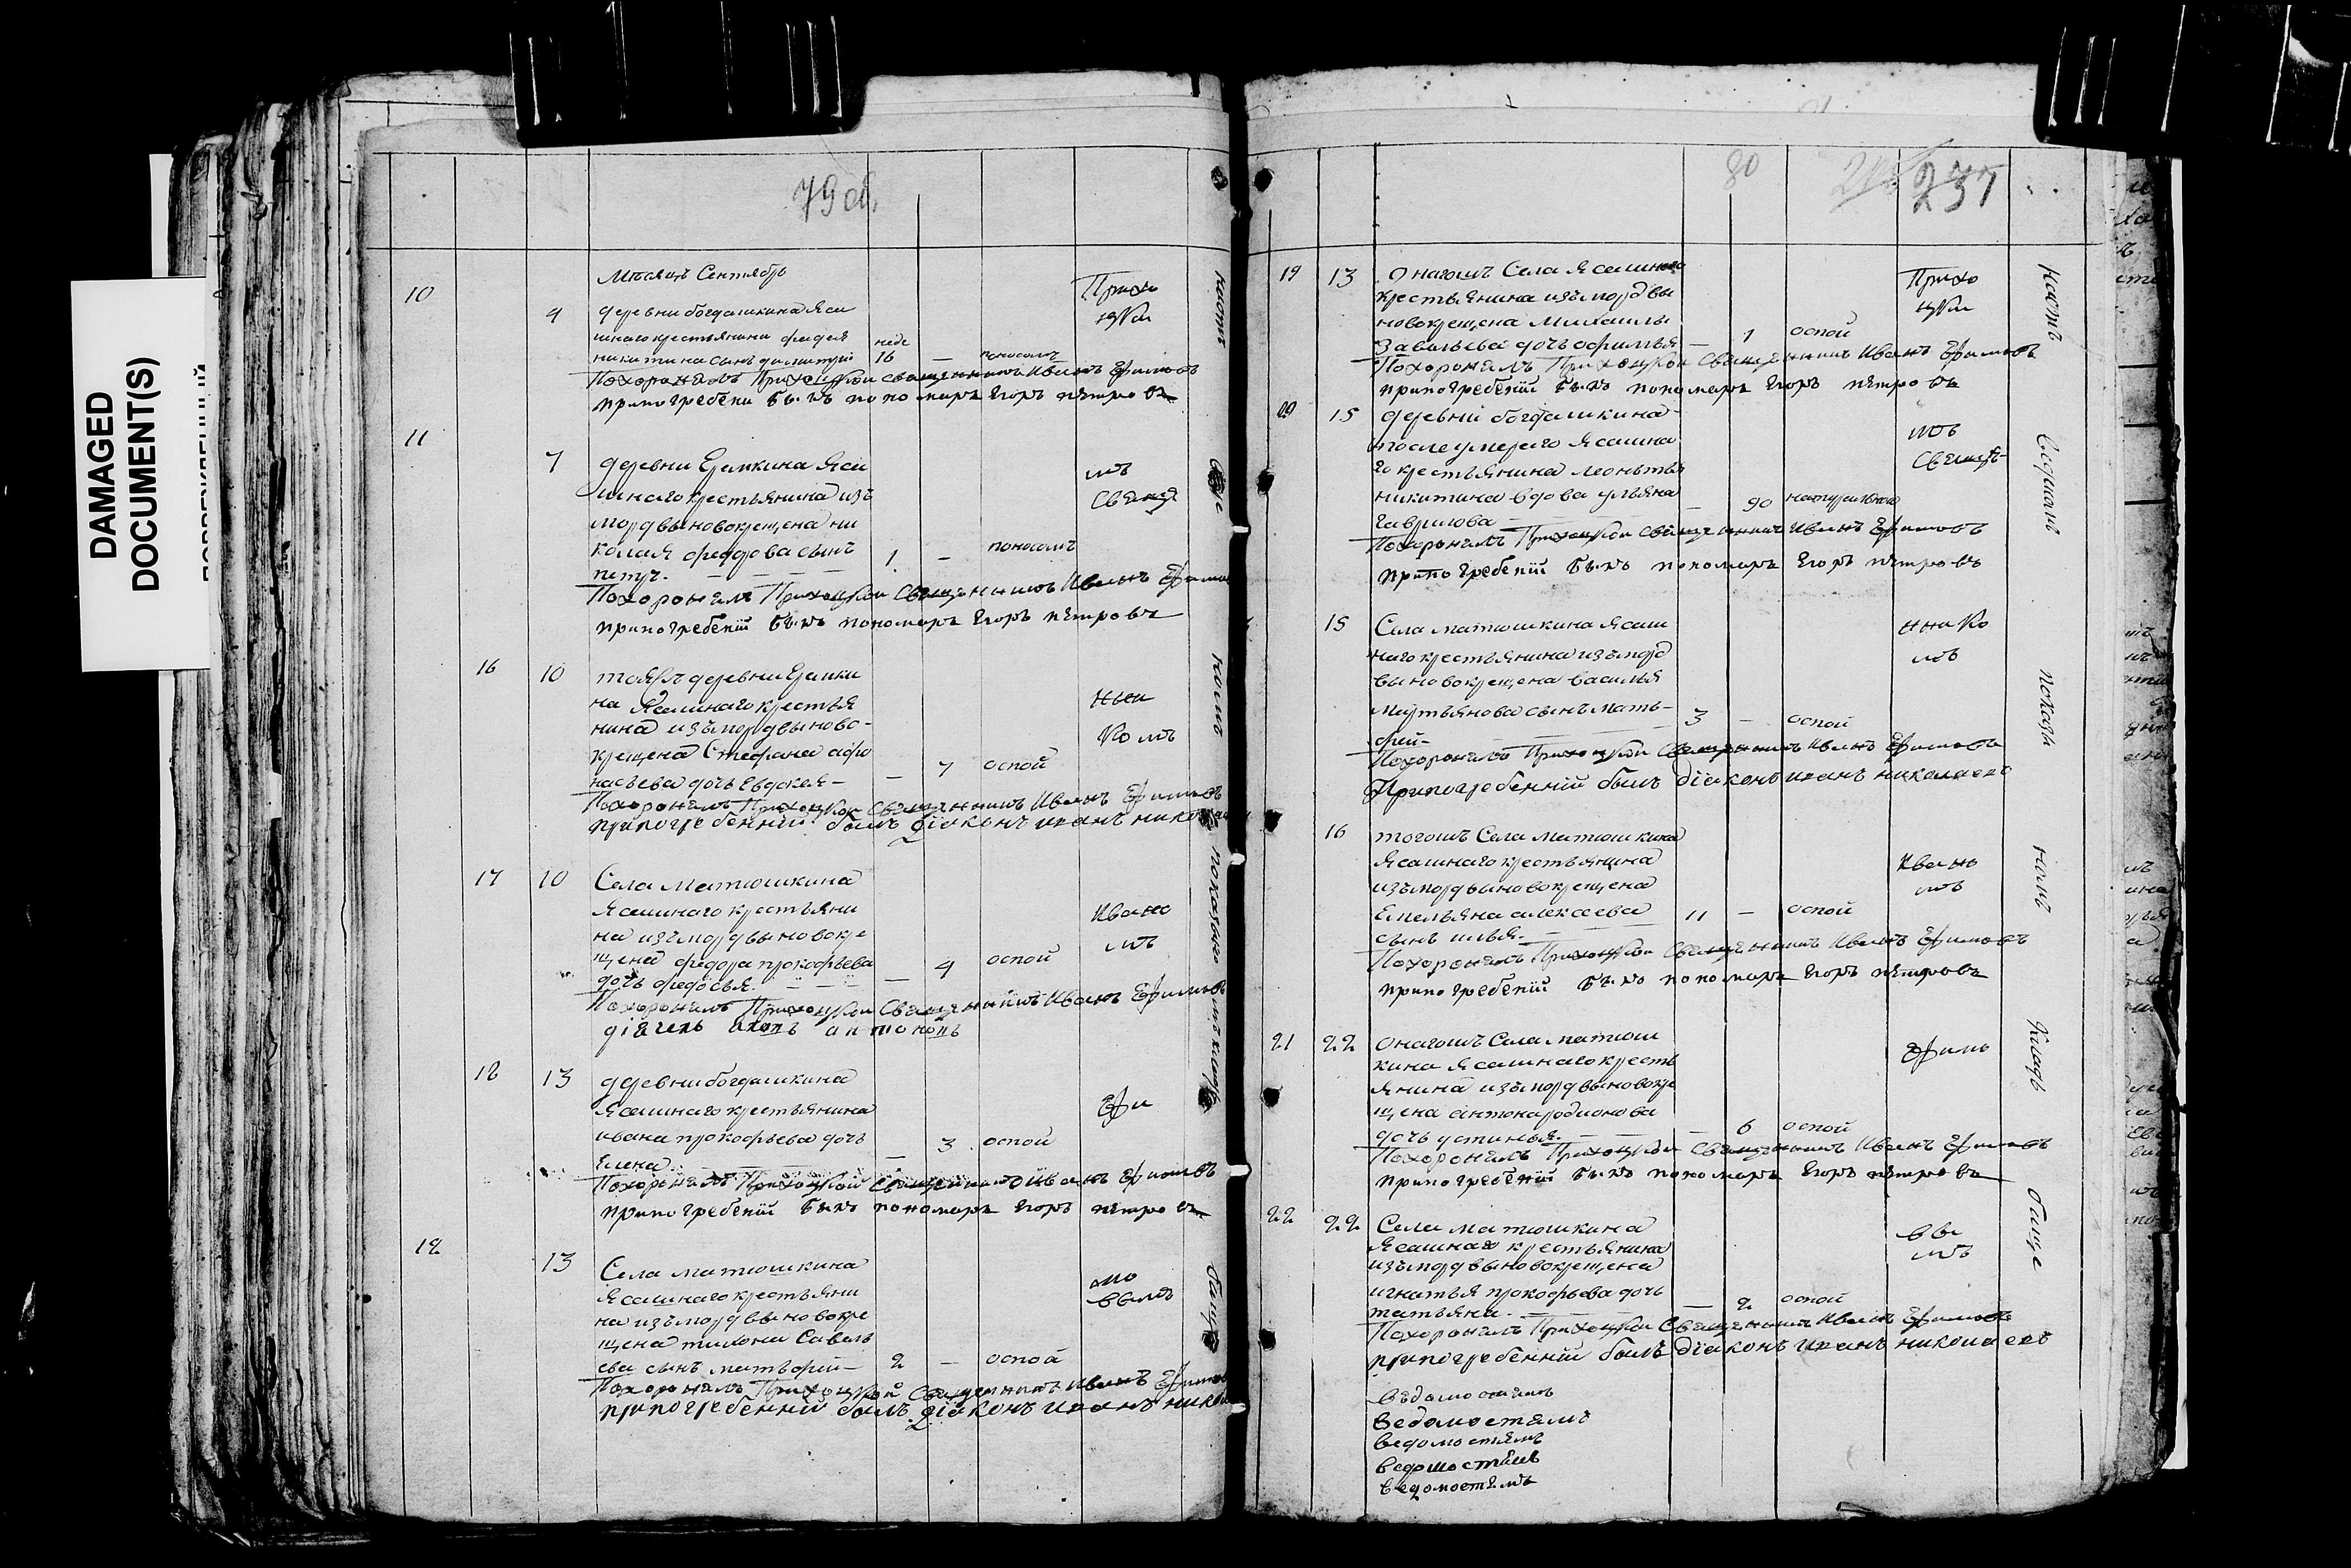 DAMAGED
DOCUMENT(S)
79 об.
Мѣсяцъ Сентябрь
10
4
деревни богдашкина яса
шнаго крестьянина федея
никитина сынъ димитрий
неде
16 — поносомъ
Прихо
цкои
Похоронилъ Прихоцкои священникъ Иванъ Ефимовъ
припогребени былъ пономарь Егоръ петровъ
11
7
деревни Еремкина яса
шнаго крестьянина изъ
мордвы новокрещена ни
колая федорова сынъ
петръ. 1 — поносомъ
мъ
Свяще
Похоронилъ Прихоцкои Священникъ Иванъ Ефимо
припогребении былъ пономарь Егоръ петровъ
16 10
тояжъ деревни Еремки
на Ясашнаго крестья
нина изъ мордвы ново-
крещена Стефана афо
насьева дочь Евдокея — — 7 оспой
нни
комъ
Похоронилъ Прихоцкои Священникъ Иванъ Ефимовъ
припогребеннии былъ діаконъ иванъ никола
17 10
Села матюшкина
Ясашнаго крестьяни
на изъ мордвы новокре
щена федора прокофьева
дочь федосья. — 4 оспой
Ивано
мъ
Похоронилъ Прихоцкои Священникъ Иванъ Ефимовъ
діячекъ антоновъ
18 13
деревни богдашкина
Ясашнаго крестьянина
ивана прокофьева дочь
Елена — 3 оспой
Ефи
Похоронилъ Прихоцкой Священникъ Иванъ Ефимовъ
припогребении былъ пономарь Егоръ петровъ
12
13
Села матюшкина
Ясашнаго крестьяни
на изъ мордвы новокре
щена тихона Савель
ева сынъ матьфей — 2 — оспой
мо
вымъ
Похоронилъ Прихоцкой Священникъ Иванъ Ефимо
припогребенней былъ діаконъ иванъ никол
80
237
19 13
Онагошъ Села Ясашнаго
крестьянина изъ мордвы
новокрещена Михаилы
Завальева дочь офимья — 1 оспой
Прихо
цкои
Похоронилъ Прихоцкои Священникъ Иванъ Ефимовъ
припогребении былъ пономарь Егоръ петровъ
20 15
деревни богдашкина
после умерего Ясашна
го крестьянина леонтья
никитина вдова ульяна
гаврилова — 90 натуральною
мъ
Свяще
Похоронилъ Прихоцкои Священникъ Иванъ Ефимовъ
припогребении былъ пономарь Егоръ петровъ
15
Села матюшкина Ясаш
наго крестьянина изъ морд
вы новокрещена василья
мартьянова сынъ мать-
фей — 3 — оспой
ннико
мъ
Похоронилъ Прихоцкои Священникъ Иванъ Ефимовъ
Припогребенней былъ діаконъ иванъ николаевъ
16
тогошъ Села матюшкина
Ясашнаго крестьянина
изъ мордвы новокрещена
Емельяна алексеева
сынъ илья. 11 — оспой
Ивано
мъ
Похоронилъ Прихоцкои Священникъ Иванъ Ефимовъ
припогребении былъ пономарь Егоръ петровъ
21 22
Онагошъ Села матюш
кина Ясашнаго кресть
янина изъ мордвы новокре
щена антона родионова
дочь устинья. — 6 оспой
Ефимо
Похоронилъ Прихоцкои Священникъ Иванъ Ефимовъ
припогребении былъ пономарь Егоръ петровъ
22 22
Села матюшкина
Ясашнаго крестьянина
изъ мордвы новокрещена
игнатья прокофьева дочь
татьяна. — 2 оспой
вы
мъ
Похоронилъ Прихоцкои Священникъ Иванъ Ефимовъ
припогребенней былъ діаконъ иванъ николаевъ
ведомостямъ
ведомостямъ
ведомостямъ
ведомостямъ
ведомостямъ